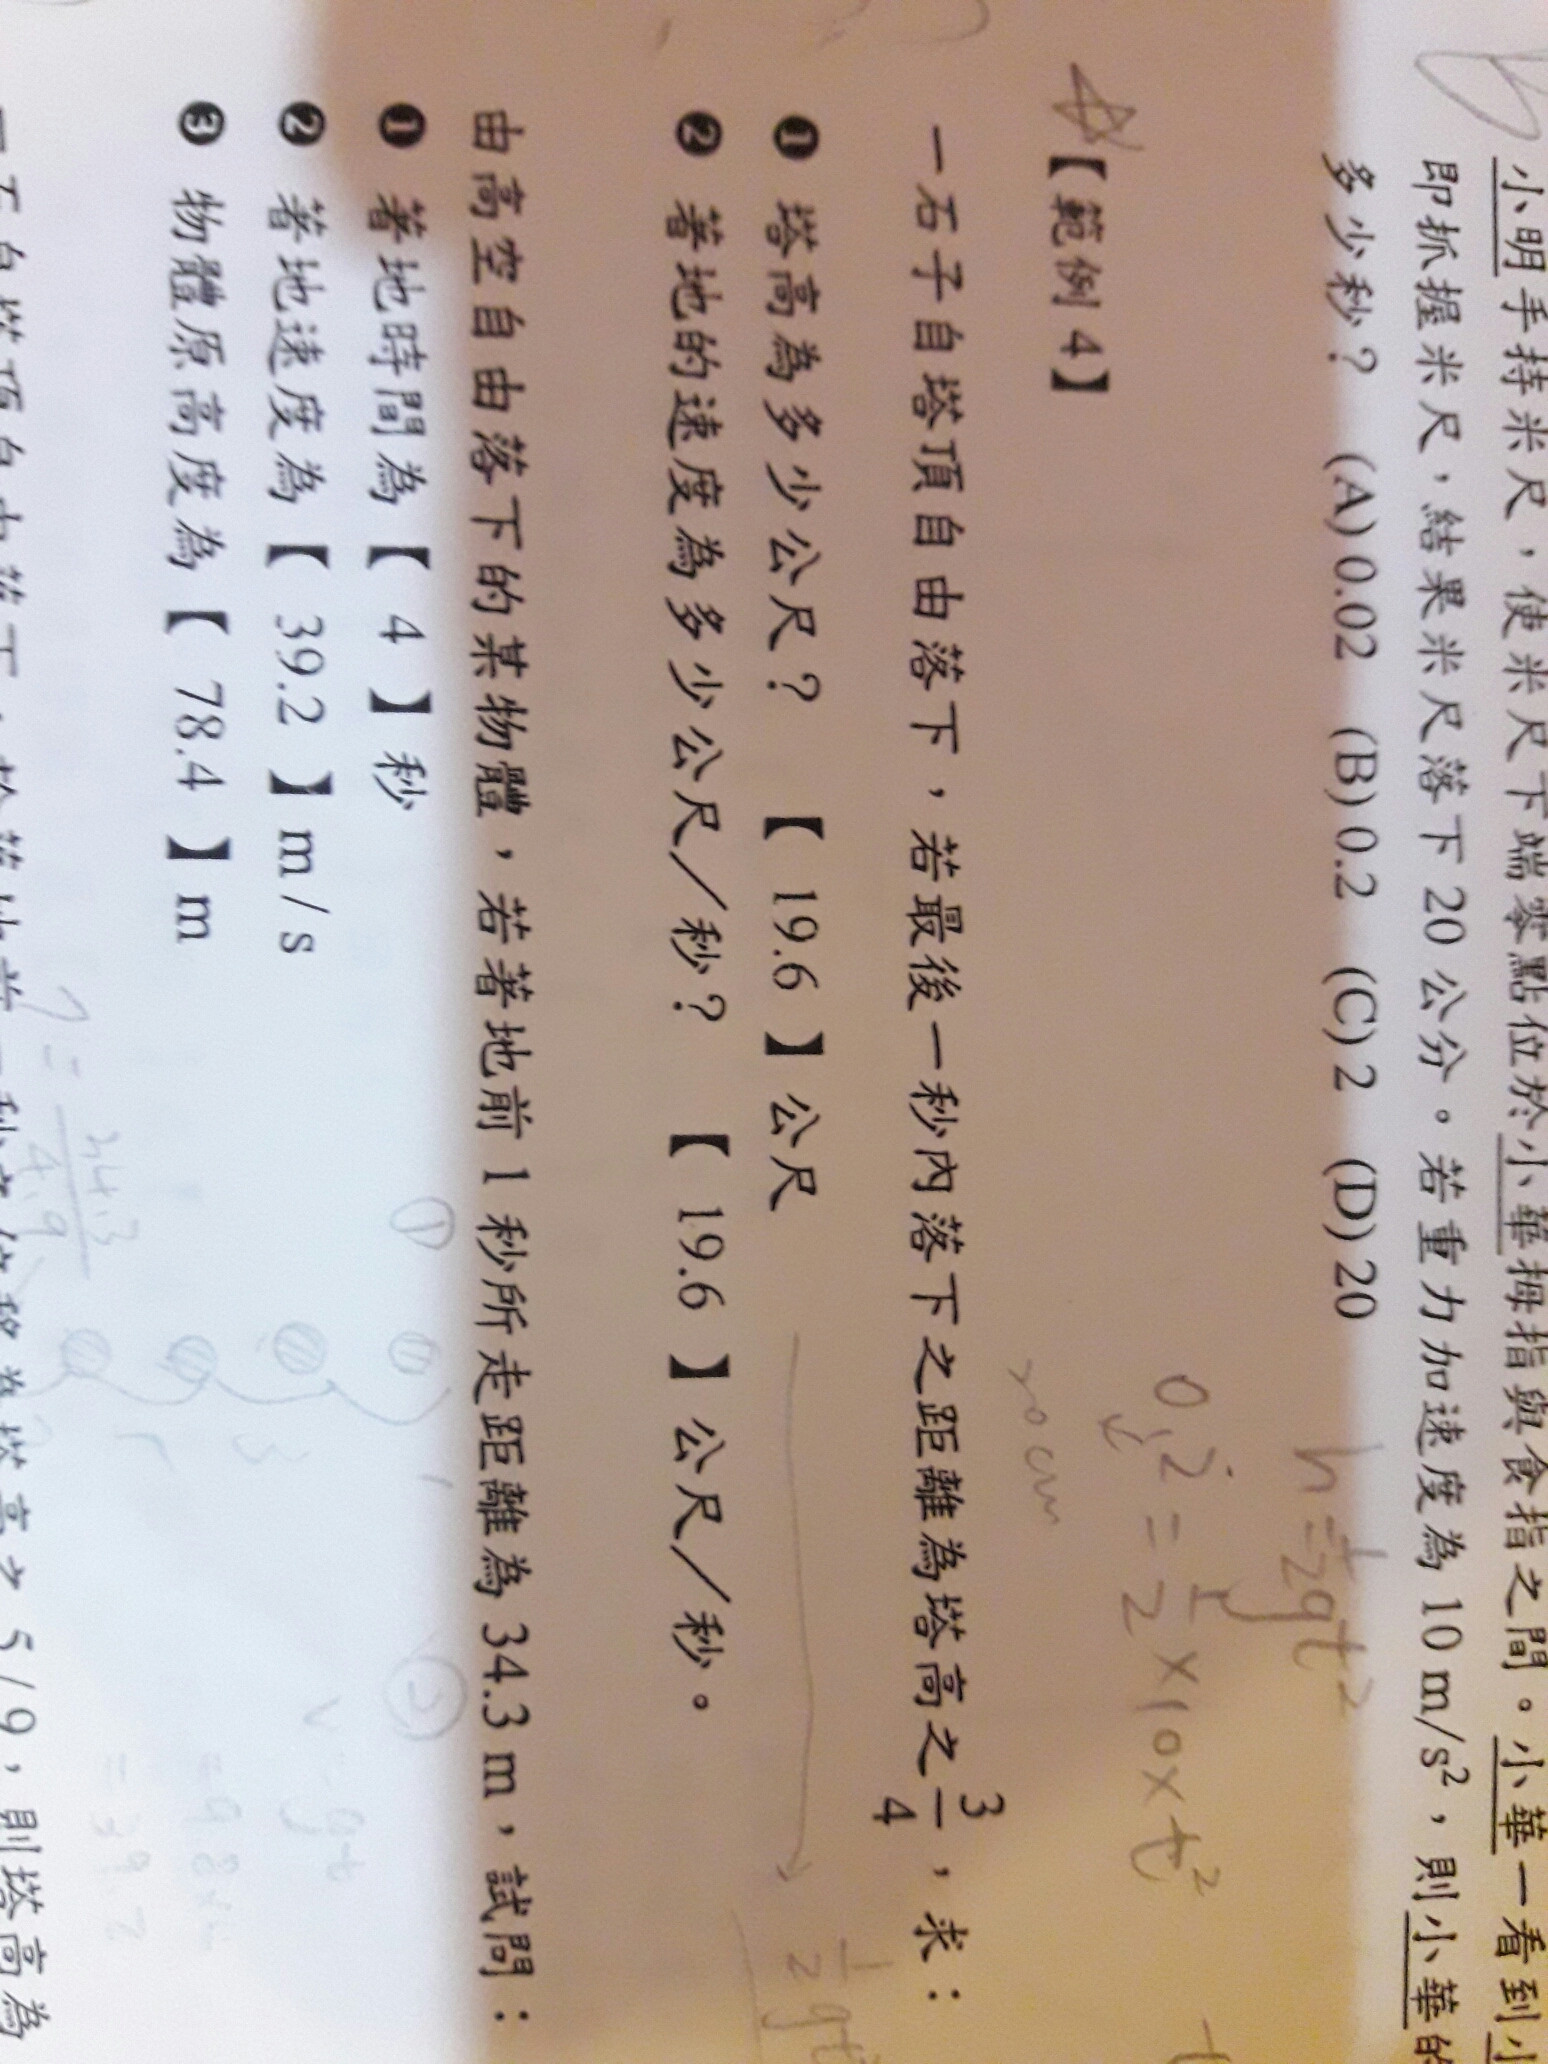 小明手持米尺，使米尺下端零點位於小華拇指與食指之間。小華一看到小
即抓握米尺，結果米尺落下 20 公分。若重力加速度為 10 m/s²，則小華的
多少秒？ (A) 0.02 (B) 0.2 (C) 2 (D) 20
h = 1/2 gt²
0.2 = 1/2 × 10 × t²
20 cm
【範例 4】
一石子自塔頂自由落下，若最後一秒內落下之距離為塔高之 3/4，求：
❶ 塔高為多少公尺？ 【 19.6 】公尺
❷ 著地的速度為多少公尺／秒？ 【 19.6 】公尺／秒。
1/2 gt
由高空自由落下的某物體，若著地前 1 秒所走距離為 34.3 m，試問：
❶ 著地時間為【 4 】秒
❷ 著地速度為【 39.2 】m / s
❸ 物體原高度為【 78.4 】m
①
②
1
3
5
7 = 34.3/4.9
v = gt
= 39.2
自塔頂自由落下，於著地前一秒之位移為塔高之 5 / 9，則塔高為